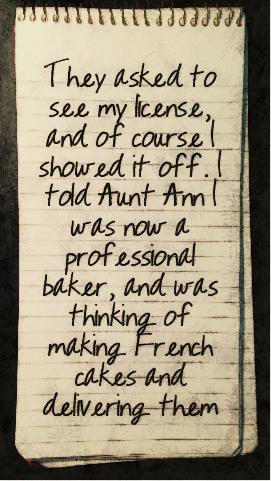 They asked to
see my license,
and of course I
showed it off. I
told Aunt Ann I
was now a
professional
baker, and was
thinking of
making French
cakes and
delivering them